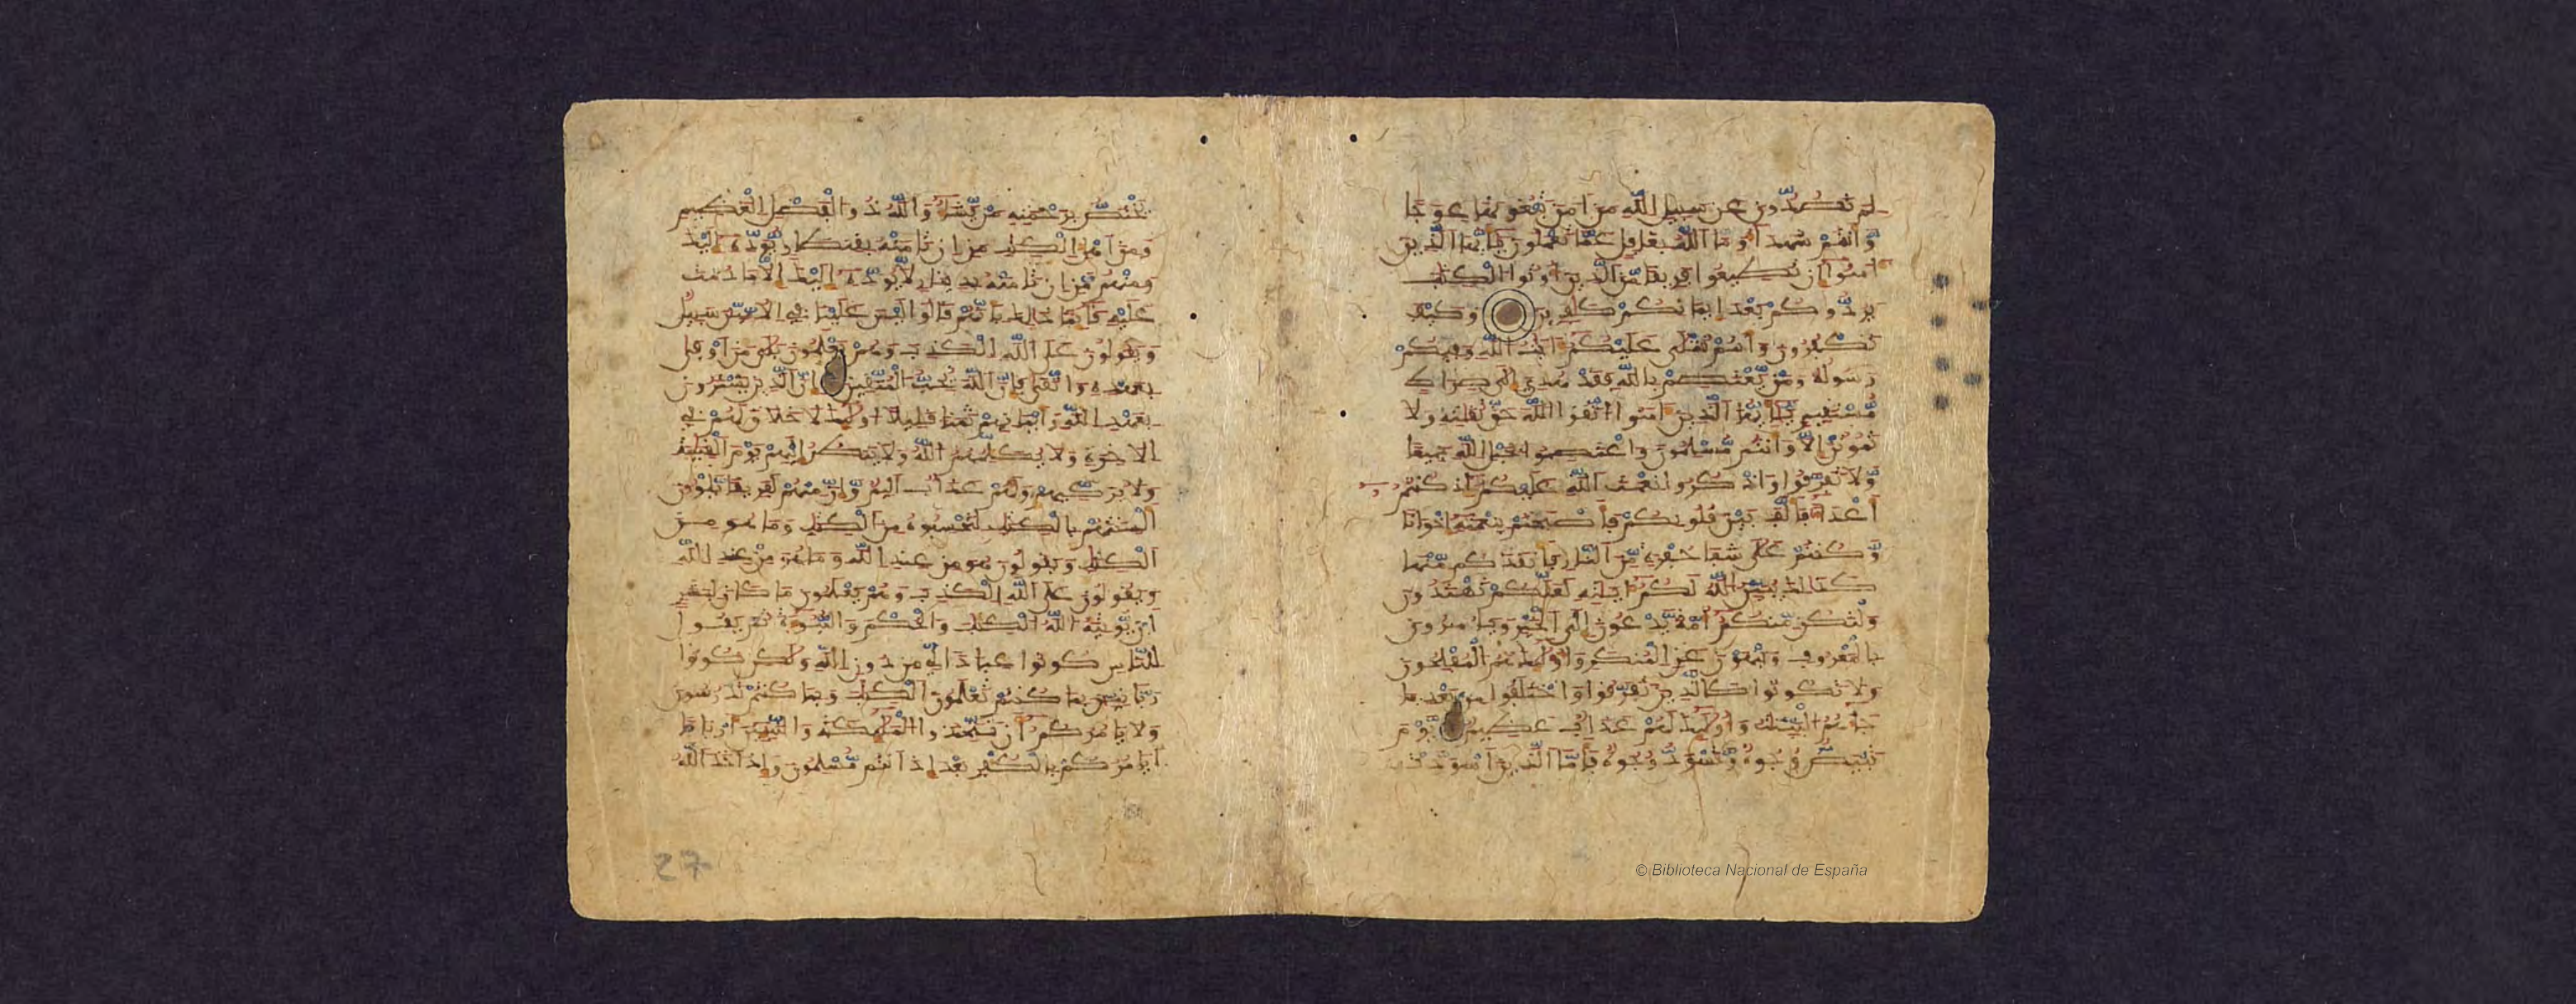 لم تصدون عن سبيل الله من امن تبغونها عوجا
وانتم شهدا وما الله بغفل عما تعملون يايها الذين
امنوا ان تطيعوا فريقا من الذين اوتوا الكتب
يردوكم بعد ايمانكم كفرين وكيف
تكفرون وانتم تتلى عليكم ايت الله وفيكم
رسوله ومن يعتصم بالله فقد هدي الى صراط
مستقيم يايها الذين امنوا اتقوا الله حق تقيته ولا
تموتن الا وانتم مسلمون واعتصموا بحبل الله جميعا
ولا تفرقوا واذكروا نعمت الله عليكم اذ كنتم
اعدا فالف بين قلوبكم فاصبحتم بنعمته اخوانا
وكنتم على شفا حفرة من النار فانقذكم منها
كذلك يبين الله لكم ايته لعلكم تهتدون
ولتكن منكم امة يدعون الى الخير ويامرون
بالمعروف وينهون عن المنكر واوليك هم المفلحون
ولا تكونوا كالذين تفرقوا واختلفوا من بعد ما
جاهم البينت واوليك لهم عذاب عظيم يوم
تبيض وجوه وتسود وجوه فاما الذين اسودت
يختص برحمته من يشا والله ذو الفضل العظيم
ومن اهل الكتب من ان تامنه بقنطار يوده اليك
ومنهم من ان تامنه بدينار لا يوده اليك الا ما دمت
عليه قايما ذلك بانهم قالوا ليس علينا في الامين سبيل
ويقولون على الله الكذب وهم يعلمون بلى من اوفى
بعهده واتقى فان الله يحب المتقين ان الذين يشترون
بعهد الله وايمانهم ثمنا قليلا اوليك لا خلاق لهم في
الاخرة ولا يكلمهم الله ولا ينظر اليهم يوم القيمة
ولا يزكيهم ولهم عذاب اليم وان منهم لفريقا يلون
السنتهم بالكتب لتحسبوه من الكتب وما هو من
الكتب ويقولون هو من عند الله وما هو من عند الله
ويقولون على الله الكذب وهم يعلمون ما كان لبشر
ان يوتيه الله الكتب والحكم والنبوة ثم يقول
للناس كونوا عبادا لي من دون الله ولكن كونوا
ربنين بما كنتم تعلمون الكتب وبما كنتم تدرسون
ولا يامركم ان تتخذوا المليكة والنبين اربابا
ايامركم بالكفر بعد اذ انتم مسلمون واذ اخذ الله
27
© Biblioteca Nacional de España